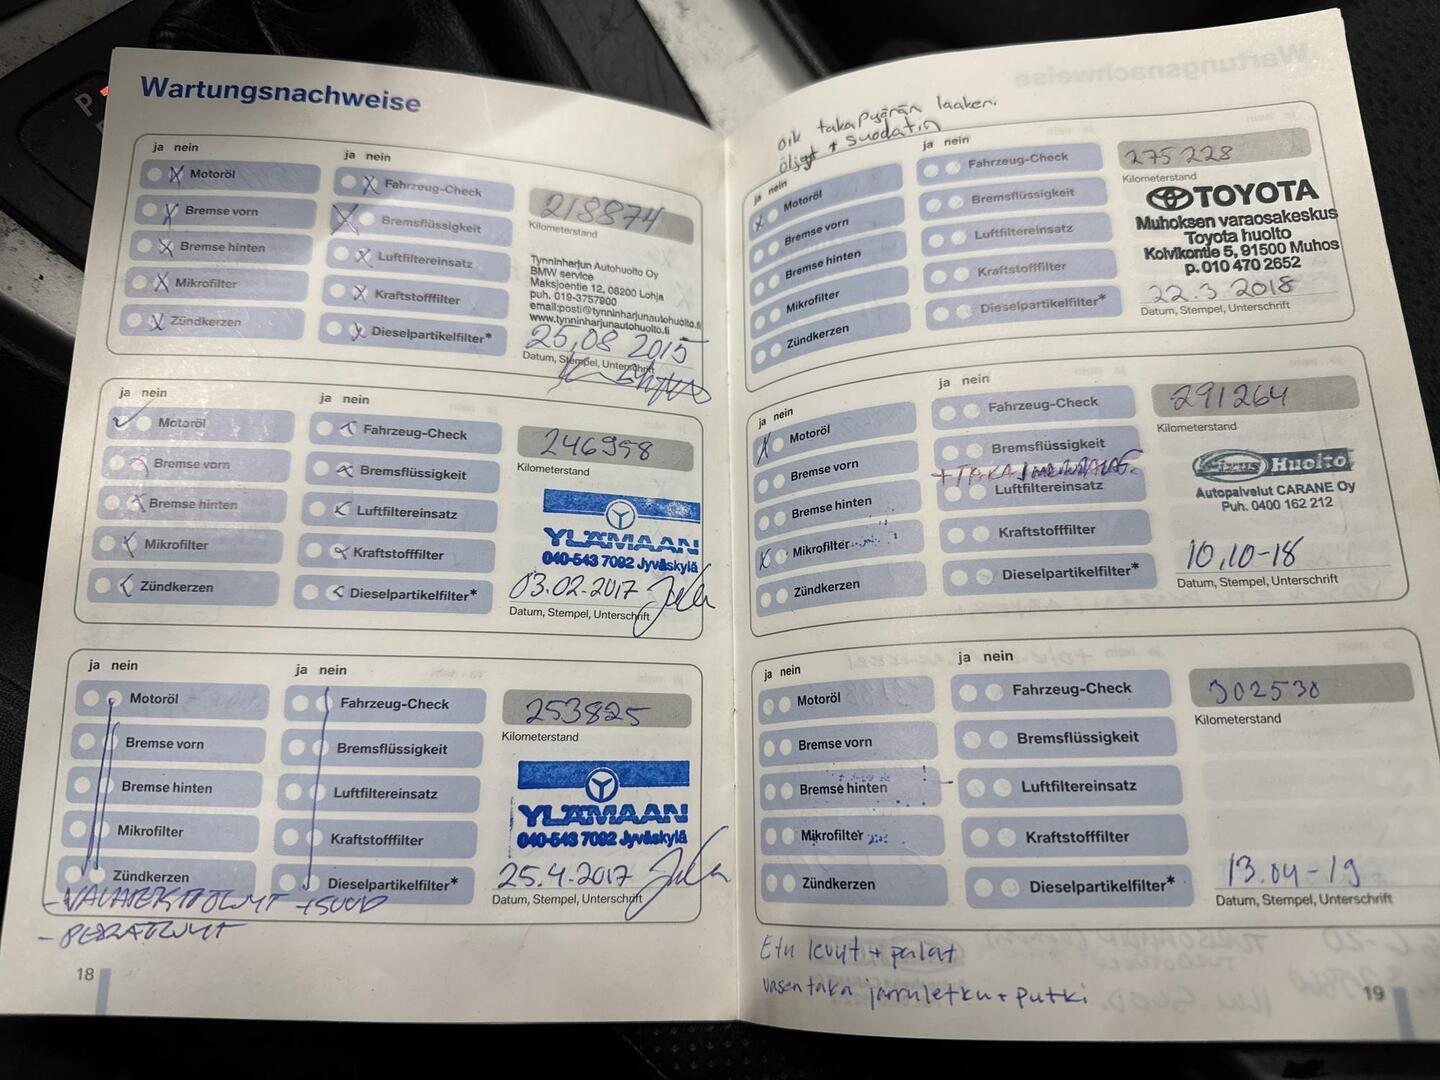 P
Wartungsnachweise
ja nein
Motoröl
Bremse vorn
Bremse hinten
Mikrofilter
Zündkerzen
ja nein
Fahrzeug-Check
Bremsflüssigkeit
Luftfiltereinsatz
Kraftstofffilter
Dieselpartikelfilter*
218874
Kilometerstand
Tynninharjun Autohuolto Oy
BMW service
Maksjoentie 12, 08200 Lohja
puh. 019-3757900
email:posti@tynninharjunautohuolto.fi
www.tynninharjunautohuolto.fi
25,08 2015
Datum, Stempel, Unterschrift
ja nein
Motoröl
Bremse vorn
Bremse hinten
Mikrofilter
Zündkerzen
ja nein
Fahrzeug-Check
Bremsflüssigkeit
Luftfiltereinsatz
Kraftstofffilter
Dieselpartikelfilter*
246958
Kilometerstand
YLÄMAAN
040-543 7092 Jyväskylä
03.02.2017
Datum, Stempel, Unterschrift
ja nein
Motoröl
Bremse vorn
Bremse hinten
Mikrofilter
Zündkerzen
ja nein
Fahrzeug-Check
Bremsflüssigkeit
Luftfiltereinsatz
Kraftstofffilter
Dieselpartikelfilter*
253825
Kilometerstand
YLÄMAAN
040-543 7092 Jyväskylä
25.4.2017
Datum, Stempel, Unterschrift
+SUOD
- PERÄÖLJYT
18
oik takapyörän laakeri
öljyt + suodatin
ja nein
Motoröl
Bremse vorn
Bremse hinten
Mikrofilter
Zündkerzen
ja nein
Fahrzeug-Check
Bremsflüssigkeit
Luftfiltereinsatz
Kraftstofffilter
Dieselpartikelfilter*
275228
Kilometerstand
TOYOTA
Muhoksen varaosakeskus
Toyota huolto
Koivikontie 5, 91500 Muhos
p. 010 470 2652
22.3 2018
Datum, Stempel, Unterschrift
ja nein
Motoröl
Bremse vorn
Bremse hinten
Mikrofilter
Zündkerzen
ja nein
Fahrzeug-Check
Bremsflüssigkeit
+ TAKA
Luftfiltereinsatz
Kraftstofffilter
Dieselpartikelfilter*
291264
Kilometerstand
Huolto
Autopalvelut CARANE Oy
Puh. 0400 162 212
10.10-18
Datum, Stempel, Unterschrift
ja nein
Motoröl
Bremse vorn
Bremse hinten
Mikrofilter
Zündkerzen
ja nein
Fahrzeug-Check
Bremsflüssigkeit
Luftfiltereinsatz
Kraftstofffilter
Dieselpartikelfilter*
302530
Kilometerstand
13.04-19
Datum, Stempel, Unterschrift
Etu levyt + palat
vasen taka jarruletku + putki
19